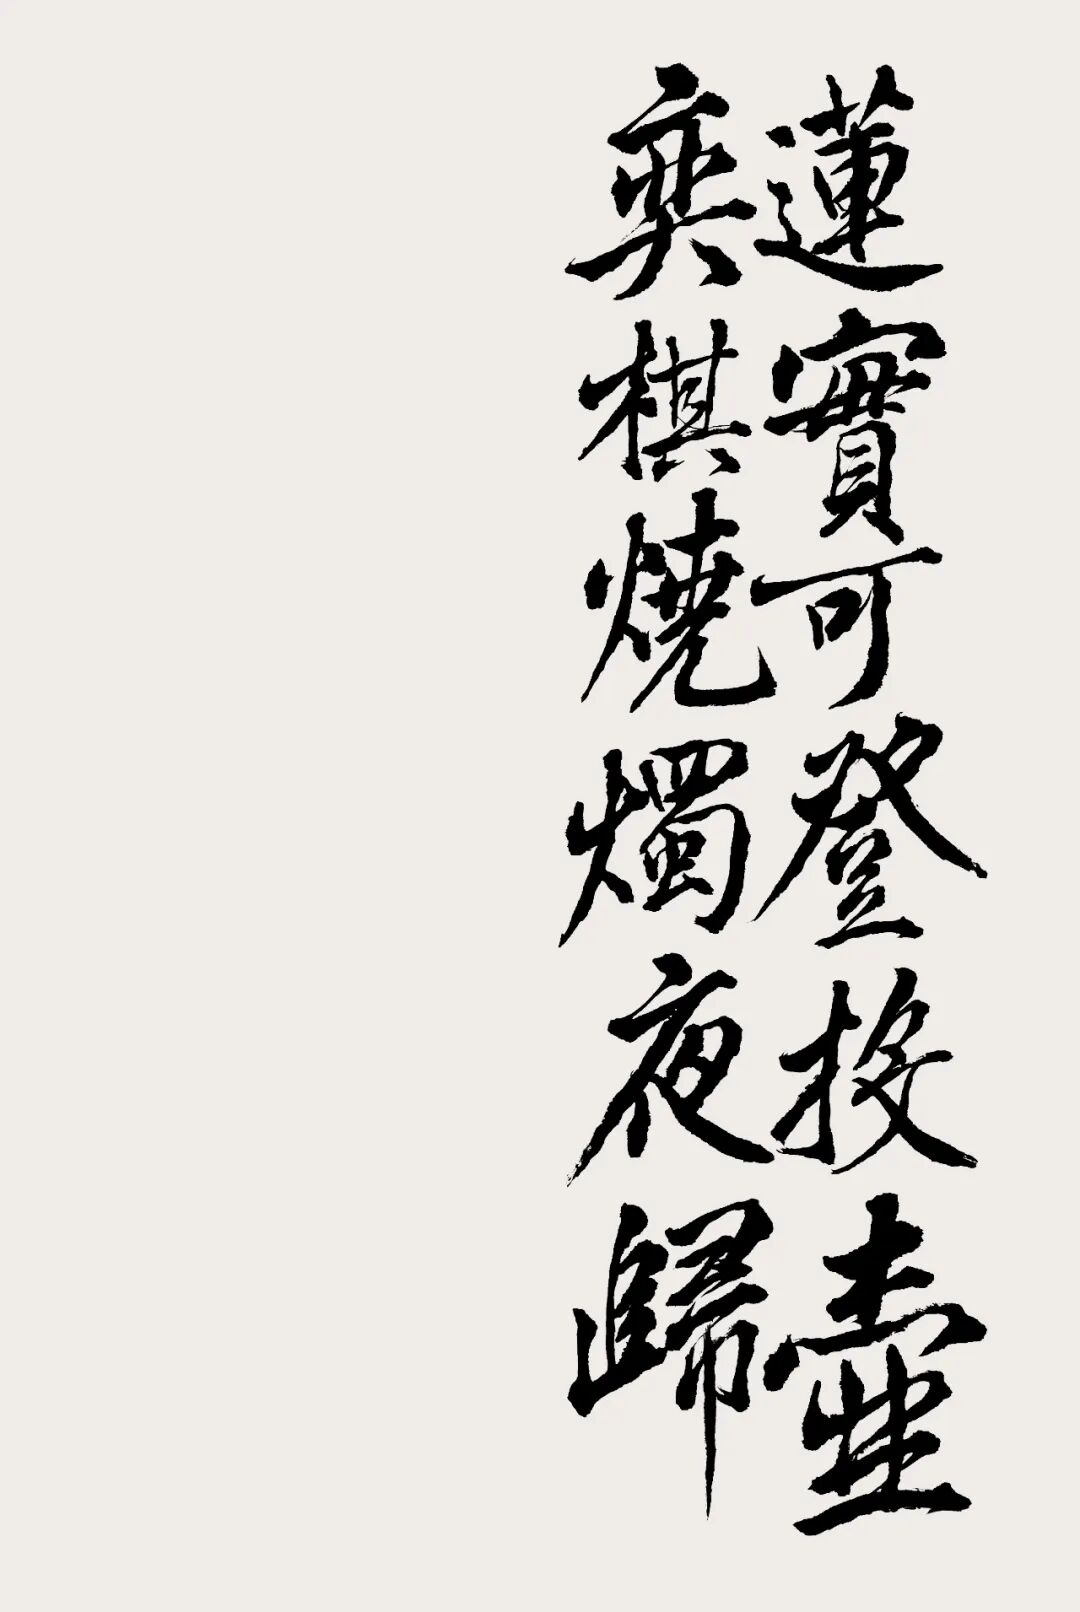 蓮實可登投壺
奕棋燒燭夜歸